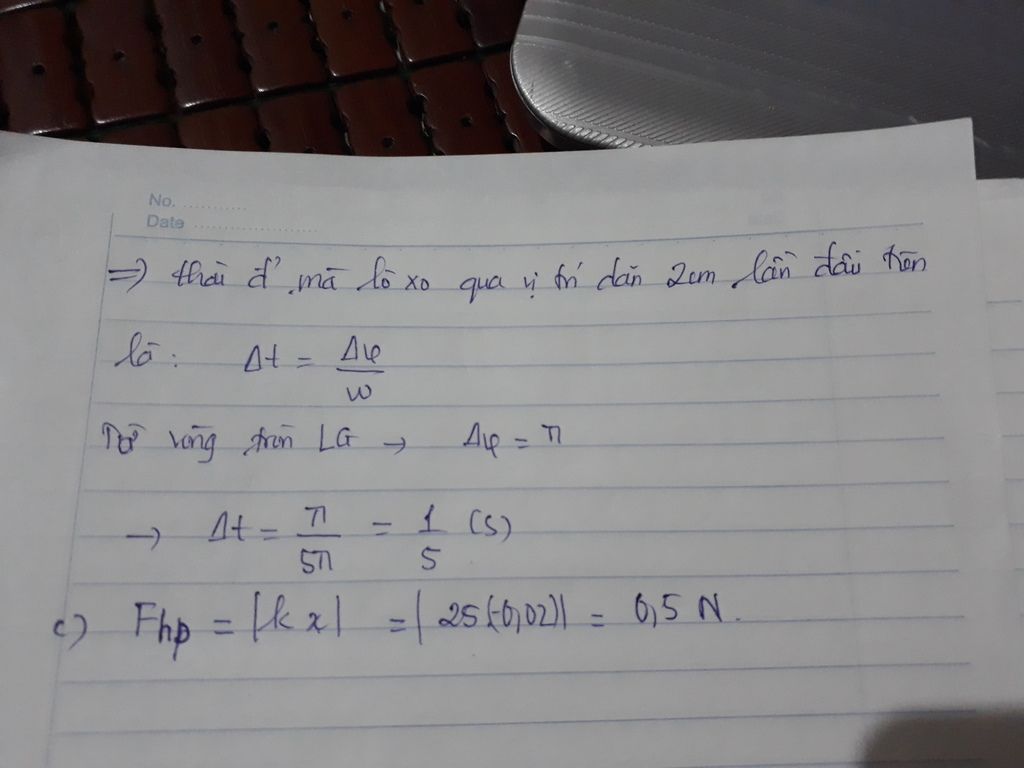 No. ...........
Date .....................
=> thời đ' mà lò xo qua vị trí dãn 2cm lần đầu tiên
là: Δt = Δφ/ω
Từ vòng tròn LG → Δφ = π
→ Δt = π/5π = 1/5 (s)
c) Fhp = |kx| = |25(-0,02)| = 0,5 N.